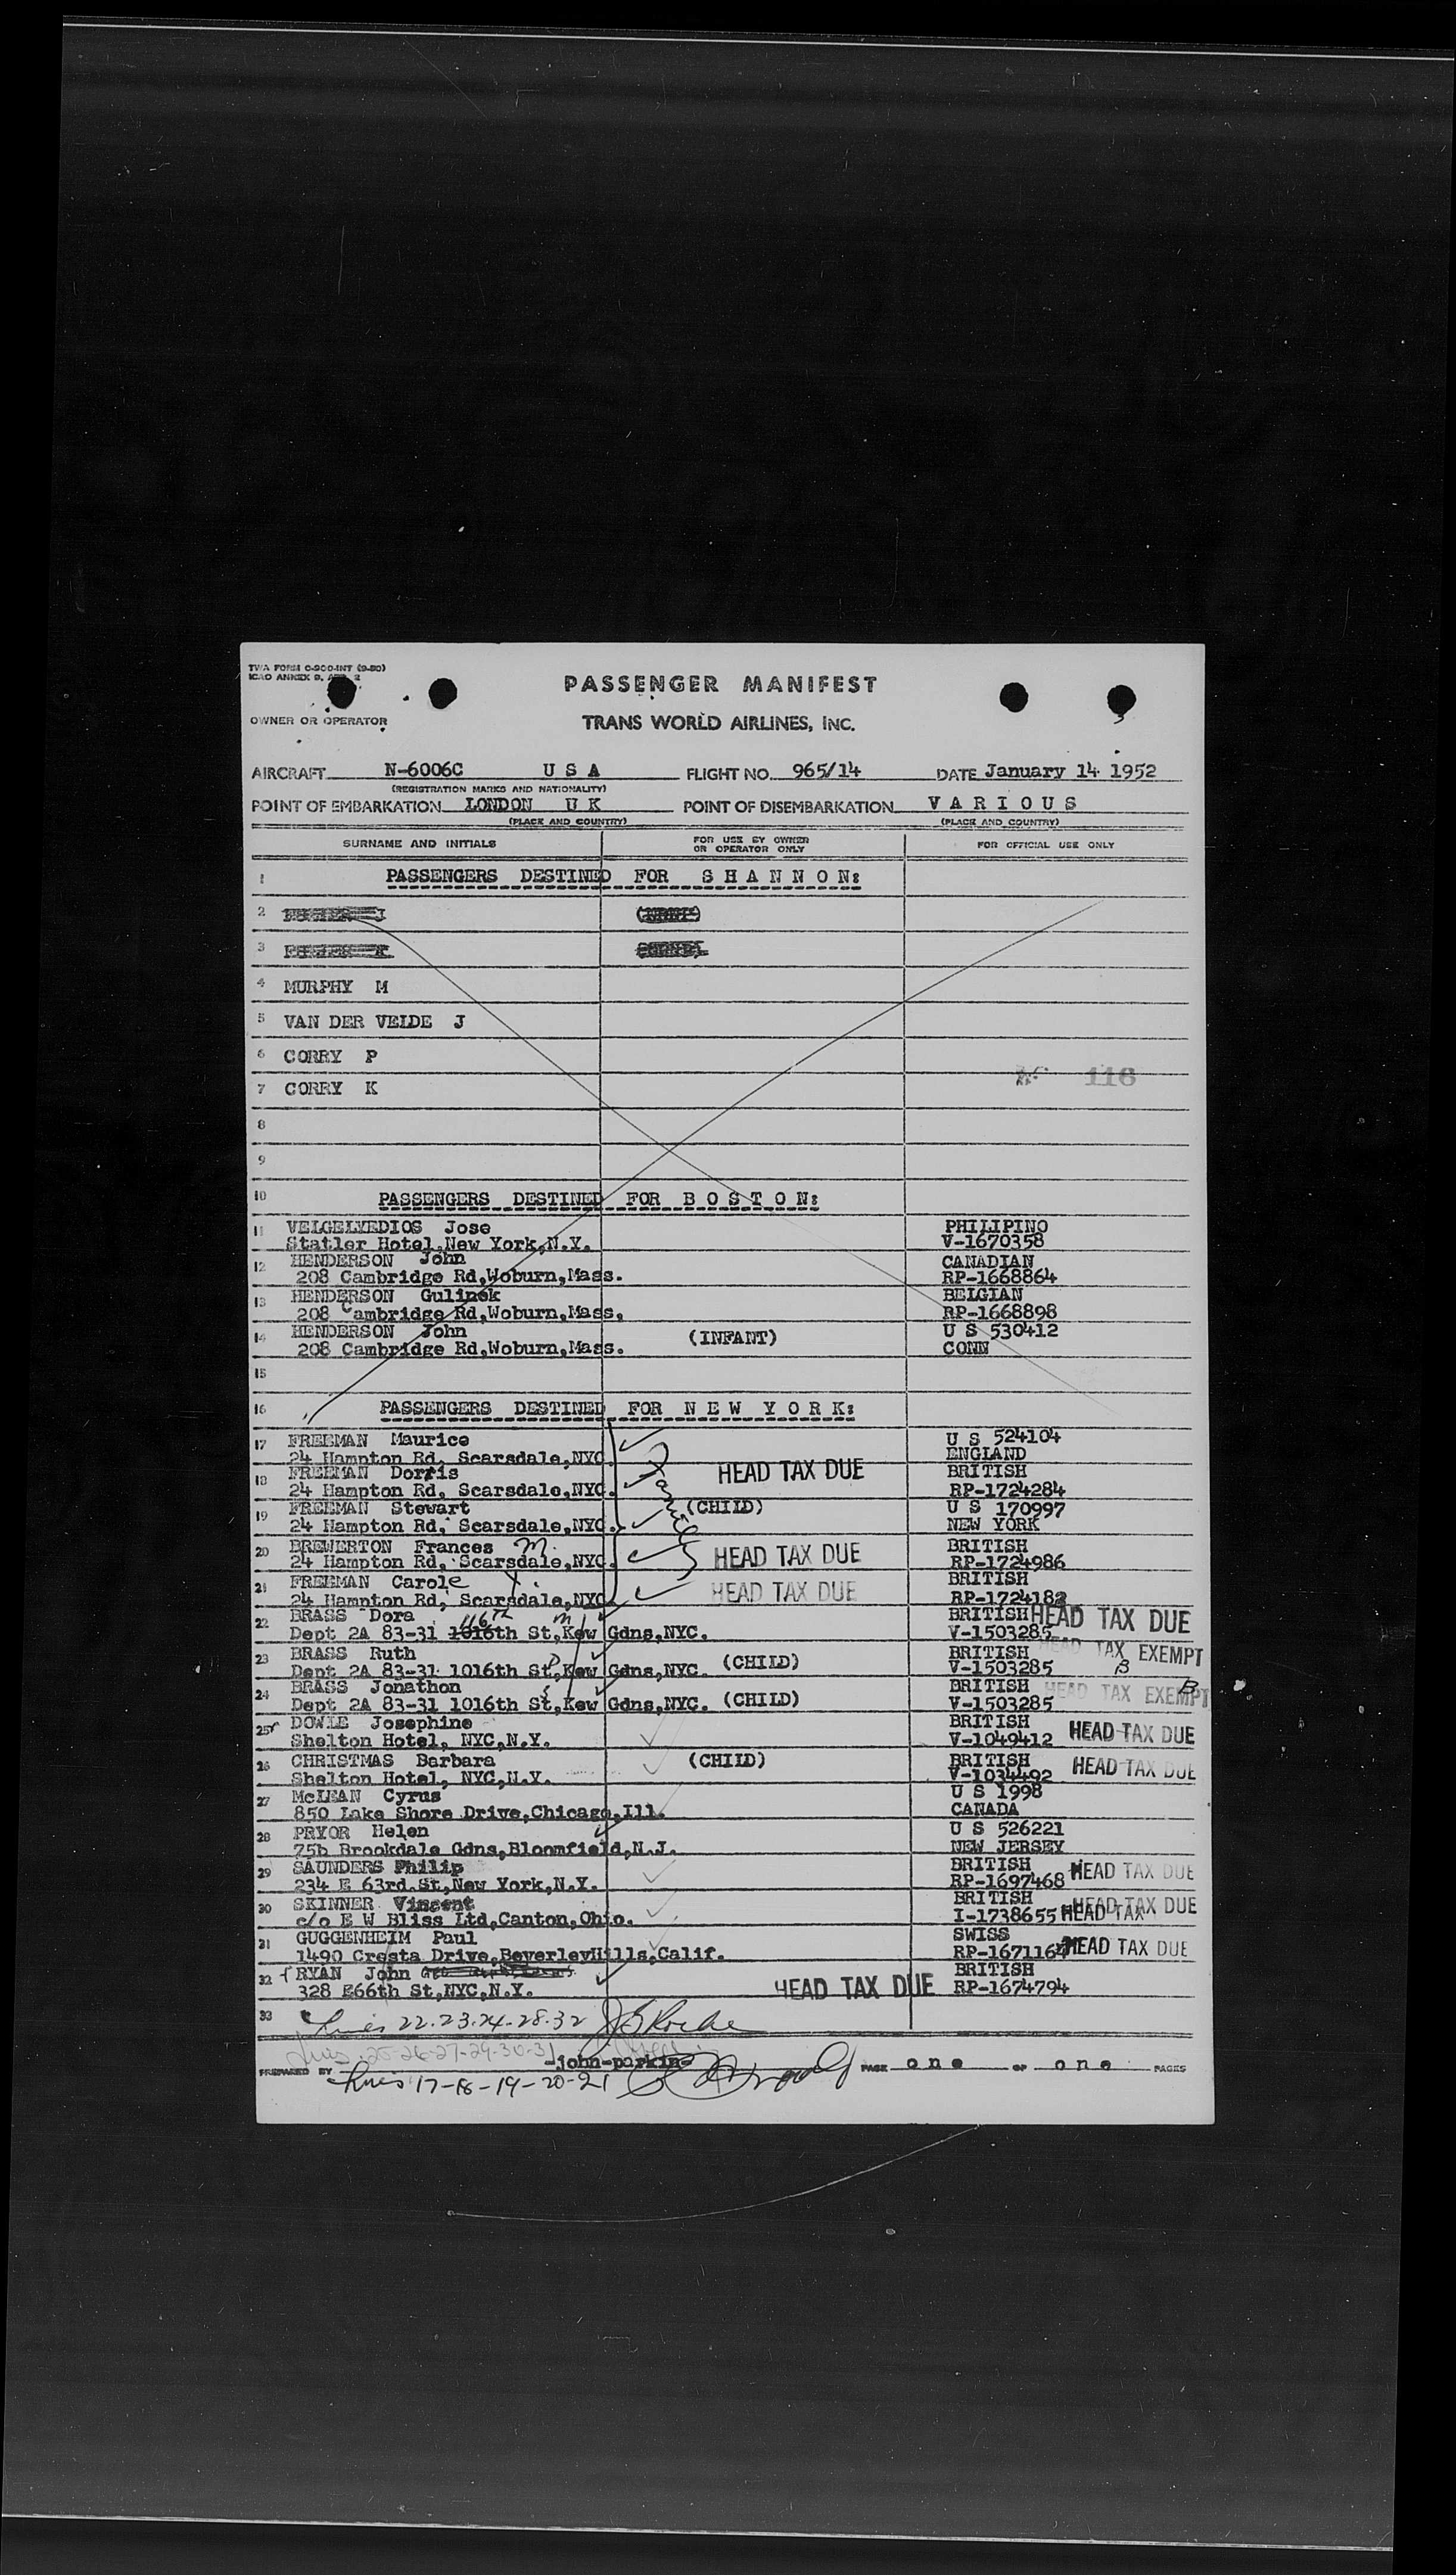 TWA FORM O-900-INT (9-50)
ICAO ANNEX 9, APP. 2
PASSENGER MANIFEST
OWNER OR OPERATOR
TRANS WORLD AIRLINES, INC.
AIRCRAFT N-6006C U S A FLIGHT NO. 965/14 DATE January 14 1952
(REGISTRATION MARKS AND NATIONALITY)
POINT OF EMBARKATION LONDON U K POINT OF DISEMBARKATION V A R I O U S
(PLACE AND COUNTRY) (PLACE AND COUNTRY)
SURNAME AND INITIALS FOR USE BY OWNER OR OPERATOR ONLY FOR OFFICIAL USE ONLY
1 PASSENGERS DESTINED FOR S H A N N O N:
2
3
4 MURPHY M
5 VAN DER VELDE J
6 CORRY P
116
7 CORRY K
8
9
10 PASSENGERS DESTINED FOR B O S T O N:
11 Jose PHILIPINO
Statler Hotel,New York,N.Y. V-1670358
12 HENDERSON John CANADIAN
208 Cambridge Rd,Woburn,Mass. RP-1668864
13 HENDERSON Gulinek BELGIAN
208 Cambridge Rd,Woburn,Mass, RP-1668898
14 HENDERSON John (INFANT) U S 530412
208 Cambridge Rd,Woburn,Mass. CONN
15
16 PASSENGERS DESTINED FOR N E W Y O R K:
17 FREEMAN Maurice U S 524104
24 Hampton Rd, Scarsdale,NYC. ENGLAND
18 FREEMAN Dorris HEAD TAX DUE BRITISH
24 Hampton Rd, Scarsdale,NYC. RP-1724284
19 FREEMAN Stewart (CHILD) U S 170997
24 Hampton Rd, Scarsdale,NYC. NEW YORK
family
20 BREWERTON Frances M. HEAD TAX DUE BRITISH
24 Hampton Rd, Scarsdale,NYC. RP-1724986
21 FREEMAN Carole Y. HEAD TAX DUE BRITISH
24 Hampton Rd, Scarsdale,NYC. RP-1724182
22 BRASS Dora 116th m BRITISH HEAD TAX DUE
Dept 2A 83-31 1016th St,Kew Gdns,NYC. V-1503285
23 BRASS Ruth (CHILD) BRITISH HEAD TAX EXEMPT
Dept 2A 83-31 1016th St,Kew Gdns,NYC. V-1503285 B
24 BRASS Jonathon (CHILD) BRITISH HEAD TAX EXEMPT B
Dept 2A 83-31 1016th St,Kew Gdns,NYC. V-1503285
25 DOWIE Josephine BRITISH HEAD TAX DUE
Shelton Hotel, NYC,N.Y. V-1049412
26 CHRISTMAS Barbara (CHILD) BRITISH HEAD TAX DUE
Shelton Hotel, NYC,N.Y. V-1034492
27 McLEAN Cyrus U S 1998
850 Lake Shore Drive,Chicago,Ill. CANADA
28 PRYOR Helen U S 526221
75b Brookdale Gdns,Bloomfield,N.J. NEW JERSEY
29 SAUNDERS Philip BRITISH HEAD TAX DUE
234 E 63rd.St,New York,N.Y. RP-1697468
30 SKINNER Vincent BRITISH HEAD TAX DUE
c/o E W Bliss Ltd,Canton,Ohio. I-1738655 HEAD TAX
31 GUGGENHEIM Paul SWISS
1490 Cresta Drive,BeverleyHills,Calif. RP-1671164 HEAD TAX DUE
32 RYAN John BRITISH
328 E66th St,NYC,N.Y. HEAD TAX DUE RP-1674794
33 Lines 22-23-24-28-32
Lines 25-26-27-29-30-31
PREPARED BY -john-parkin- PAGE one OF one PAGES
Lines 17-18-19-20-21